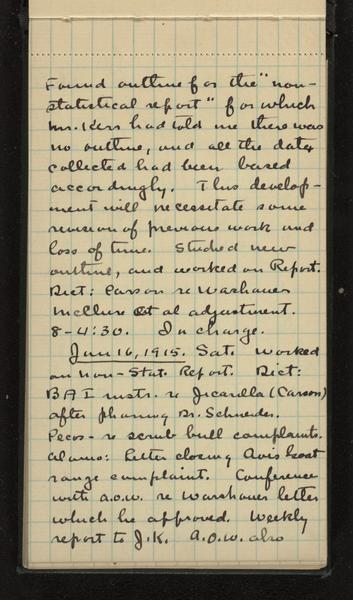 Found outline for the "non-
statistical report" for which
Mr. Kerr had told me there was
no outline, and all the data
collected had been based
accordingly. This develop-
ment will necessitate some
revision of previous work and
loss of time. Studied new
outline, and worked on Report.
Dict: Carson re Warshauer
McClure et al adjustment.
8-4:30. In charge.
Jan 16, 1915. Sat. Worked
on Non-Stat. Report. Dict:
B A I instr. re Jicarilla (Carson)
after phoning Dr. Schneider.
Pecos - re scrub bull complaints.
Alamo: Letter closing Avis goat
range complaint. Conference
with A.O.W. re Warshauer letter
which he approved. Weekly
report to J.K. A.O.W. also